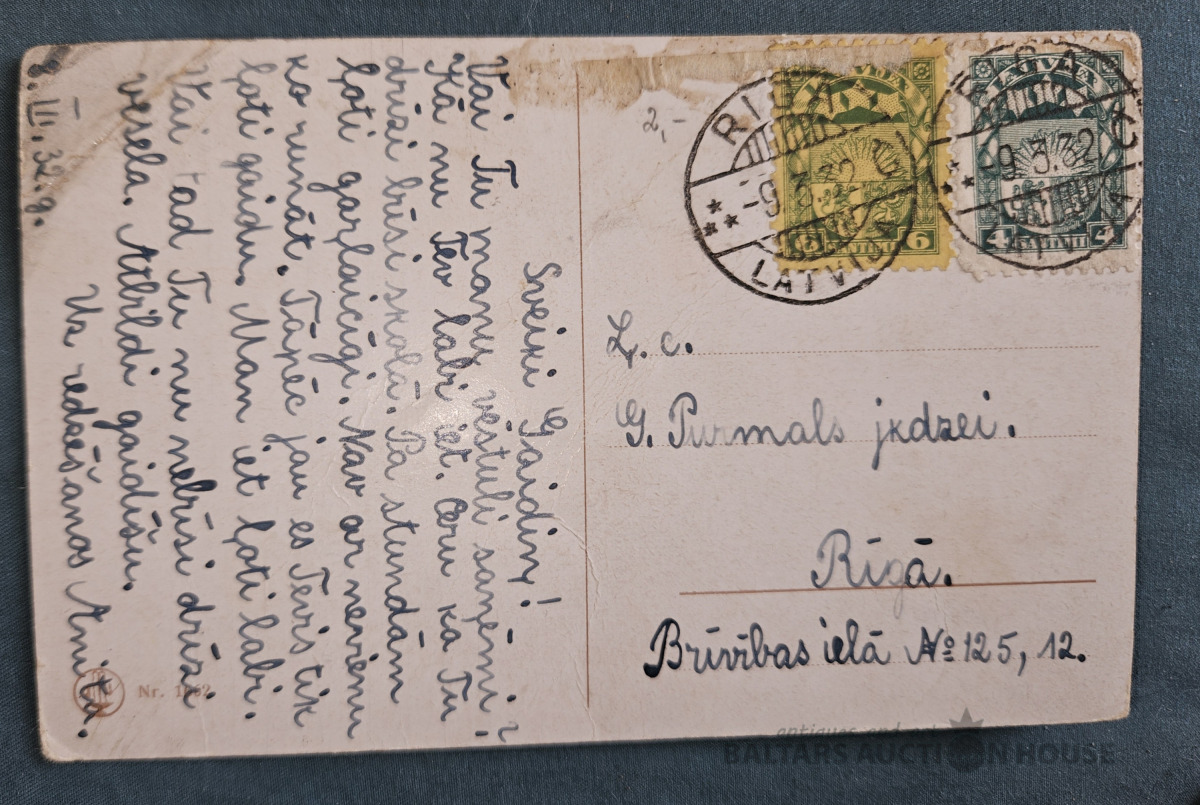 9. III. 32. g.
Sveiki Gaidiņ!
Vai Tu manu vēstuli saņēmi?
Kā nu Tev labi iet. Ceru ka Tu
drīzi būsi skolā. Pa stundām
ļoti garlaicīgi. Nav ar nevienu
ko runāt. Tāpēc jau es Tevis tik
ļoti gaidu. Man iet ļoti labi.
Vai tad Tu nu nebūsi drīzi
vesela. Atbildi gaidīšu.
Uz redzēšanos Amita.
Nr. 1862
2,-
RIGA
-9.3.32
LATVIJA
LATVIJA
6 SANTIMI 6
RIGA
-9.3.32
LATVIJA
LATVIJA
4 SANTIMI 4
Z. c.
G. Purmals jkdzei.
Rīgā.
Brīvības ielā № 125, 12.
BALTARS AUCTION HOUSE